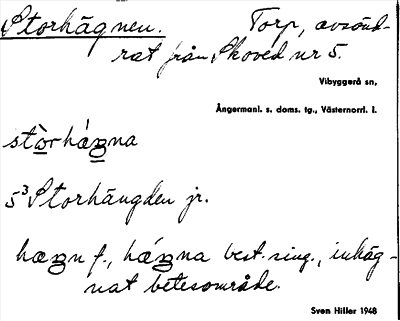 Storhägnen. Torp, avsönd-
rat från Skoved nr 5.
Vibyggerå sn,
Ångermanl. s. doms. tg., Västernorrl. l.
stòrhǽgna
5³ Storhängden jr.
hægn f., hǽgna best. sing., inhäg-
nat betesområde.
Sven Hiller 1948